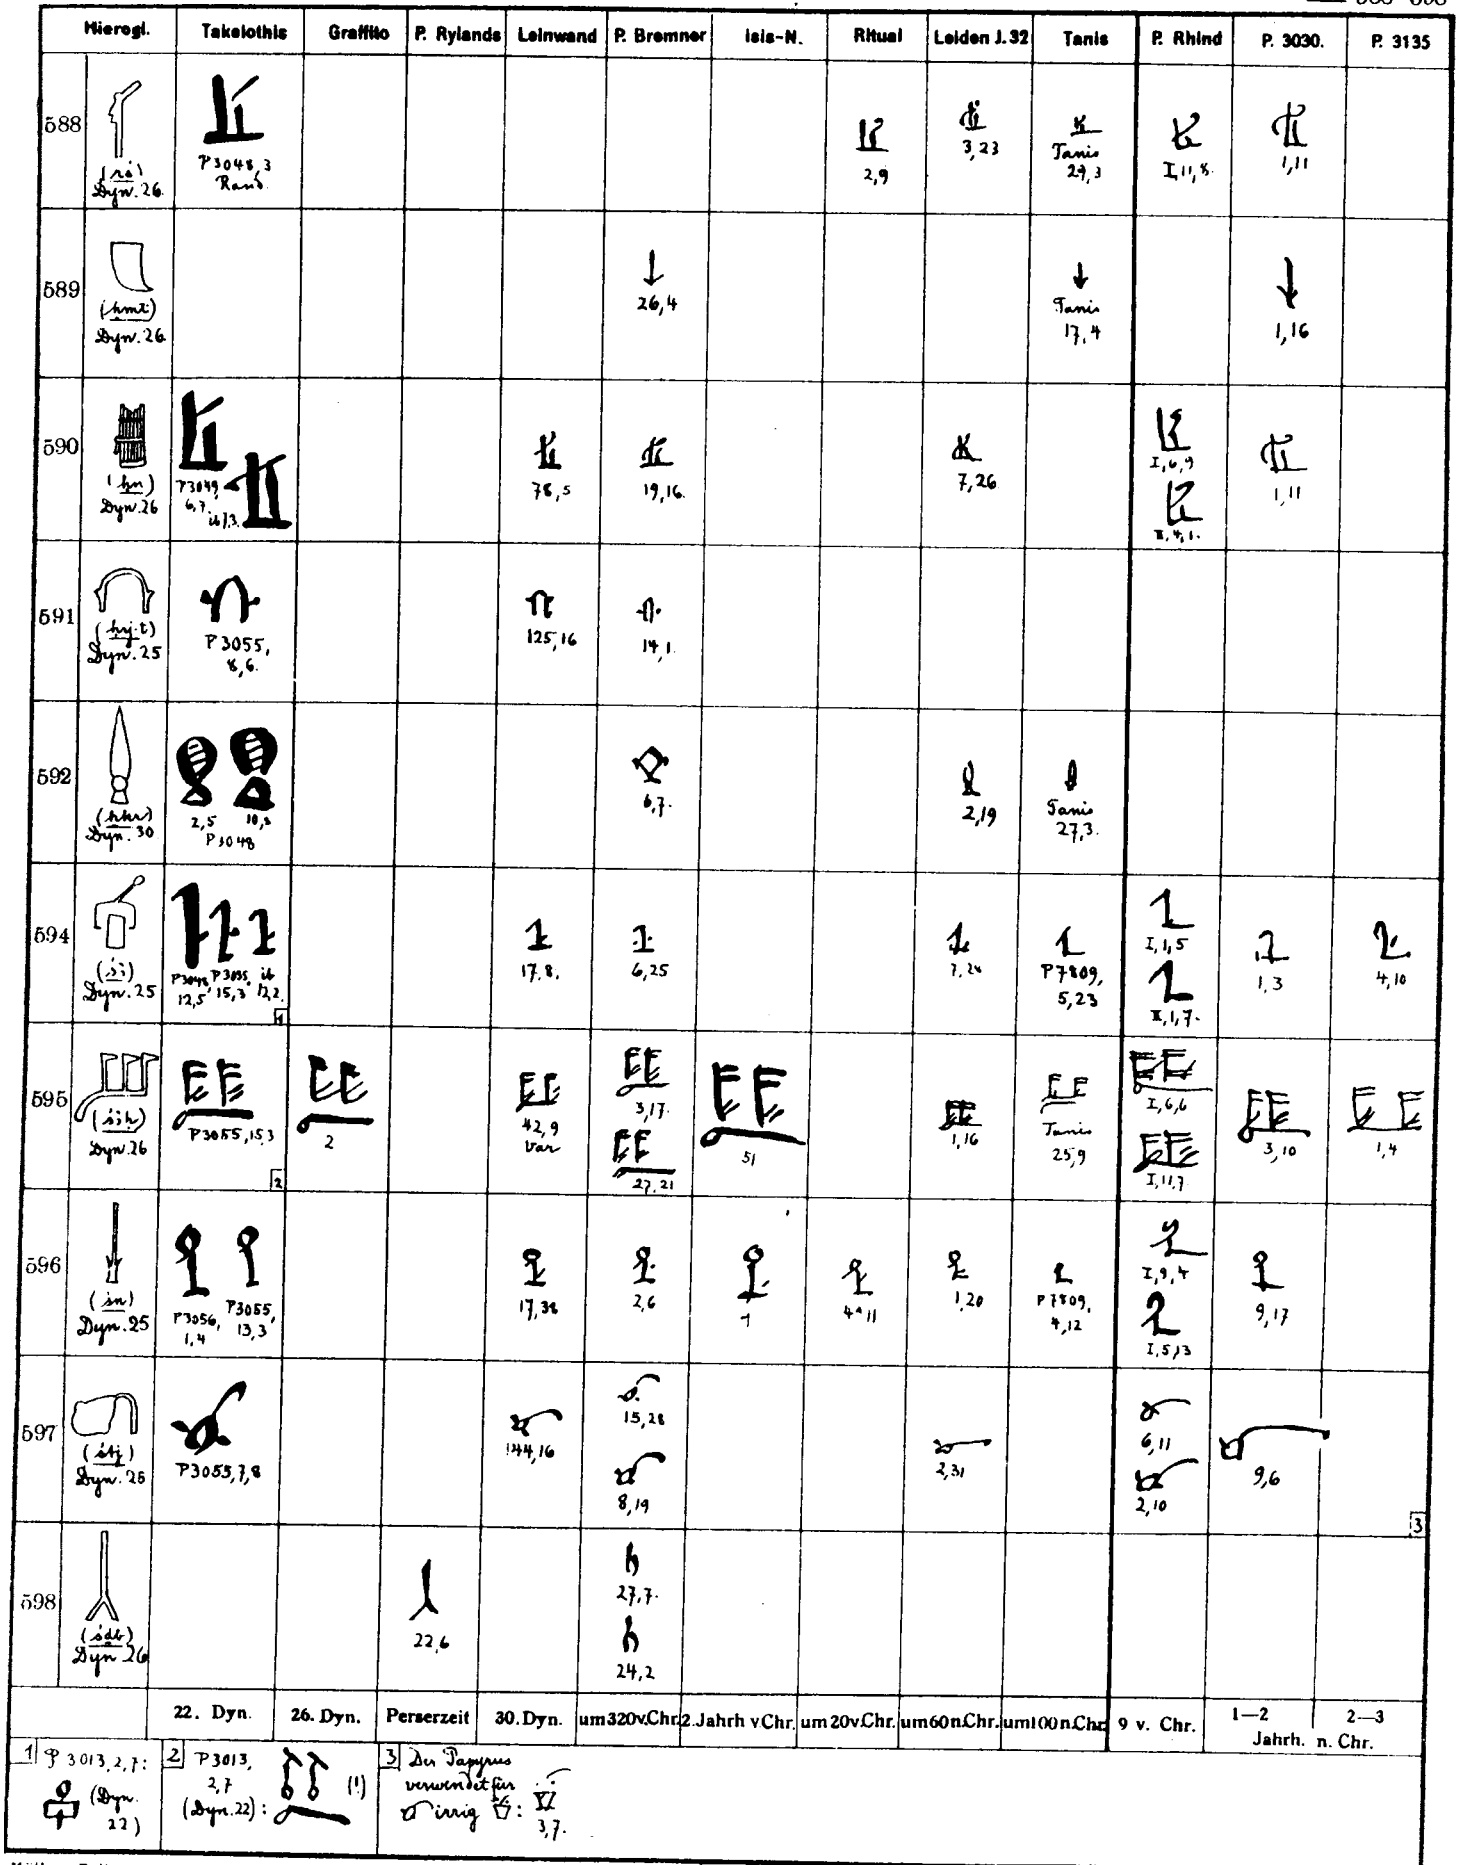 Hierogl. Takelothis Graffito P. Rylands Leinwand P. Bremner Isis-N. Ritual Leiden J. 32 Tanis P. Rhind P. 3030. P. 3135
588
Dyn. 26.
P3048,3
Rand.
2,9
3,23
Tanis
27,3
I,11,8.
1,11
589
(ḥmt)
Dyn. 26
26,4
Tanis
17,4
1,16
590
(hn)
Dyn. 26
P3049,
6,7.
ib 13.
78,5
19,16.
7,26
I,6,9
II,4,1.
1,11
591
(hj·t)
Dyn. 25
P3055,
8,6.
125,16
14,1.
592
(hkr)
Dyn. 30
2,5
P3048
6,7.
2,19
Tanis
27,3.
594
Dyn. 25
P3048, P3055, ib
12,5 15,3 12,2.
1
17,8.
6,25
7,24
P7809,
5,23
I,1,5
II,1,7.
1,3
4,10
595
Dyn. 26
P3055,15,3
2
2
42,9
Var
3,17.
27,21
51
1,16
Tanis
25,9
I,6,6
I,11,7
3,10
1,4
596
(śn)
Dyn. 25
P3056,
1,4
P3055,
13,3
17,38
2,6
1
4ᵃ11
1,20
P7809,
4,12
I,9,4
I,5,13
9,17
597
(śtj)
P3055,7,8
144,16
15,28
8,19
2,31
6,11
2,10
9,6
3
598
(śdb)
Dyn 26
22,6
27,7.
24,2
22. Dyn. 26. Dyn. Perserzeit 30. Dyn. um 320 v. Chr. 2. Jahrh v. Chr. um 20 v. Chr. um 60 n. Chr. um 100 n. Chr. 9 v. Chr. 1—2 2—3
Jahrh. n. Chr.
1 P 3013,2,7:
(Dyn.
22)
2 P3013,
2,7
(Dyn. 22): (!)
3 Der Papyrus
verwendet für
irrig :
3,7.